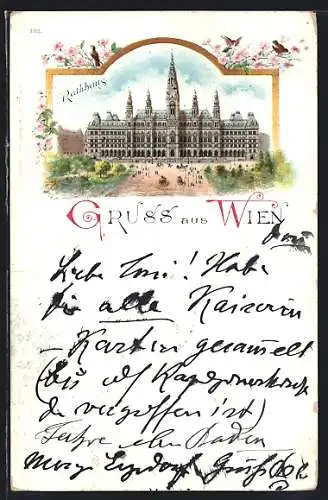 102.
Rathhaus
GRUSS aus WIEN
Liebe Toni! Habe
für alle Kaiserin
- Karten gesammelt
(bis auf Kapuzinerkirche
die vergriffen ist)
Fahre eben Baden
Morgen